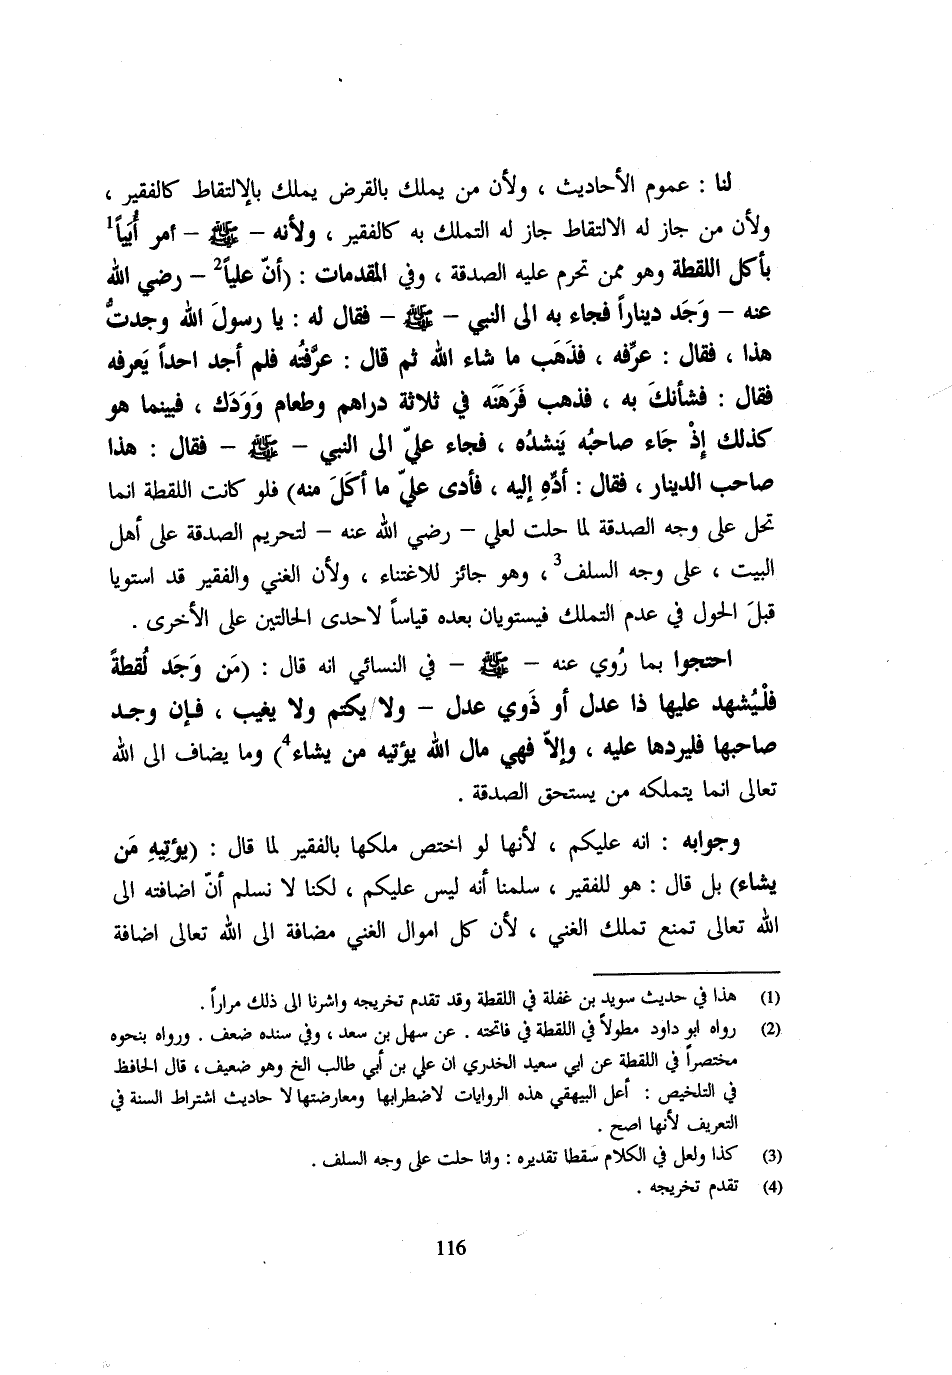 لنا : عموم الأحاديث ، ولأن من يملك بالقرض يملك بالإلتقاط كالفقير ،
ولأن من جاز له الالتقاط جاز له التملك به كالفقير ، ولأنه – ﷺ – أمر أُبَياً1
بأكل اللقطة وهو ممن تحرم عليه الصدقة ، وفي المقدمات : (أنّ علياً2 – رضي الله
عنه – وَجَد ديناراً فجاء به الى النبي – ﷺ – فقال له : يا رسولَ الله وجدتُ
هذا ، فقال : عرِّفه ، فذَهَب ما شاء الله ثم قال : عرَّفتُه فلم أجد احداً يَعرفه
فقال : فشأنكَ به ، فذهب فَرَهَنَه في ثلاثة دراهم وطعام وَوَدَك ، فبينما هو
كذلك إذْ جَاء صاحبُه يَنشدُه ، فجاء عليّ الى النبي – ﷺ – فقال : هذا
صاحب الدينار ، فقال : أدِّهِ إليه ، فأدى عليّ ما أكَلَ منه) فلو كانت اللقطة انما
تحل على وجه الصدقة لما حلت لعلي – رضي الله عنه – لتحريم الصدقة على أهل
البيت ، على وجه السلف3 ، وهو جائز للاغتناء ، ولأن الغني والفقير قد استويا
قبلَ الحول في عدم التملك فيستويان بعده قياساً لاحدى الحالتين على الأخرى .
احتجوا بما رُوي عنه – ﷺ – في النسائي انه قال : (مَن وَجَد لُقطةً
فلْيُشهد عليها ذا عدل أو ذَوي عدل – ولا يكتم ولا يغيب ، فإن وجد
صاحبها فليردها عليه ، وإلاّ فهي مال الله يؤتيه من يشاء4) وما يضاف الى الله
تعالى انما يتملكه من يستحق الصدقة .
وجوابه : انه عليكم ، لأنها لو اختص ملكها بالفقير لما قال : (يؤتِيهِ مَن
يشاء) بل قال : هو للفقير ، سلمنا أنه ليس عليكم ، لكنا لا نسلم أنّ اضافته الى
الله تعالى تمنع تملك الغني ، لأن كل اموال الغني مضافة الى الله تعالى اضافة
(1) هذا في حديث سويد بن غفلة في اللقطة وقد تقدم تخريجه واشرنا الى ذلك مراراً .
(2) رواه ابو داود مطولاً في اللقطة في فاتحته . عن سهل بن سعد ، وفي سنده ضعف . ورواه بنحوه
مختصراً في اللقطة عن ابي سعيد الخدري ان علي بن أبي طالب الخ وهو ضعيف ، قال الحافظ
في التلخيص : أعل البيهقي هذه الروايات لاضطرابها ومعارضتها لا حاديث اشتراط السنة في
التعريف لأنها اصح .
(3) كذا ولعل في الكلام سَقطا تقديره : وانا حلت على وجه السلف .
(4) تقدم تخريجه .
116